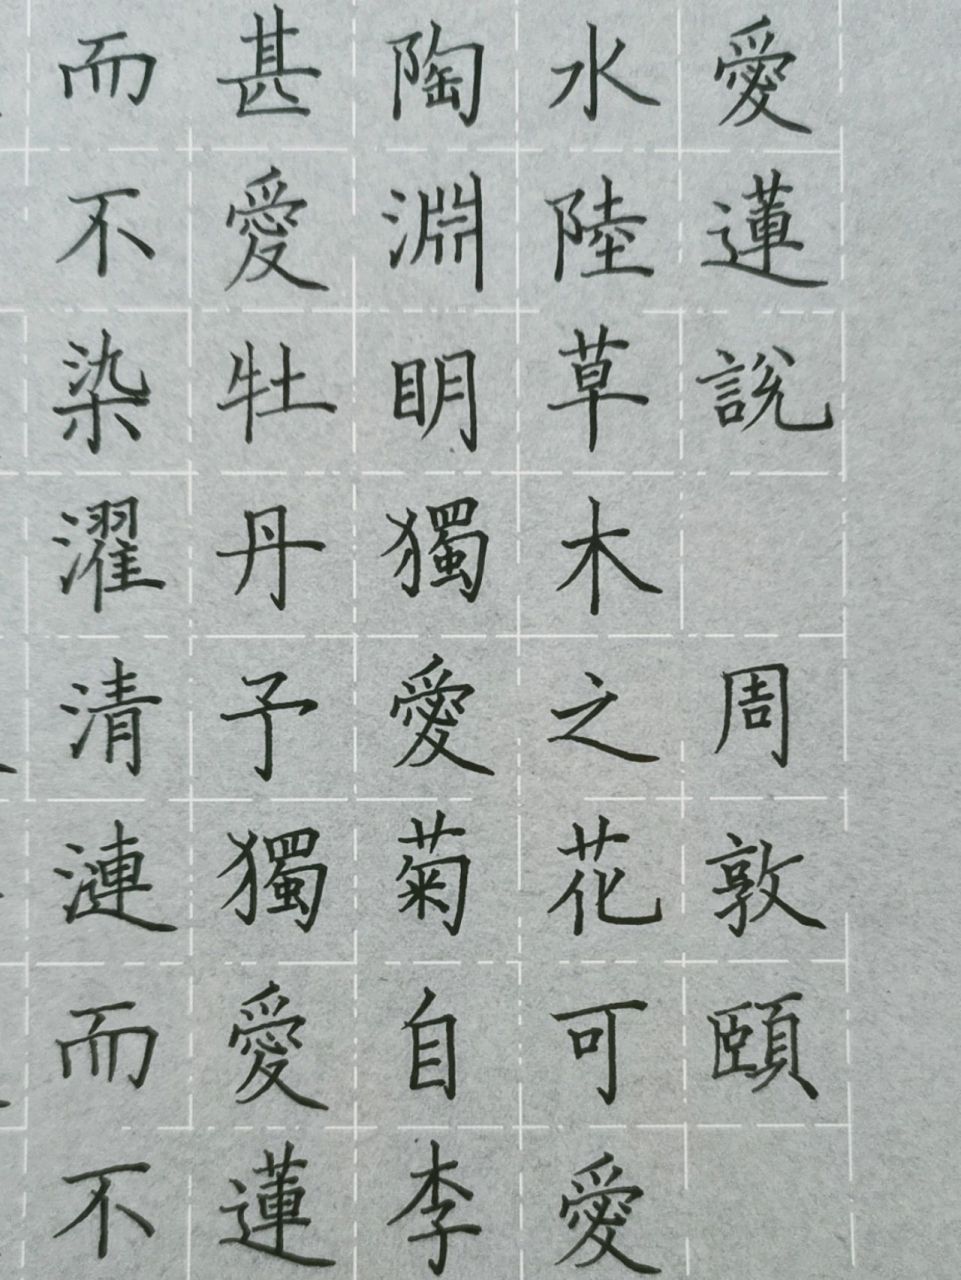 愛蓮說 周敦頤
水陸草木之花可愛
陶淵明獨愛菊自李
甚愛牡丹予獨愛蓮
而不染濯清漣而不